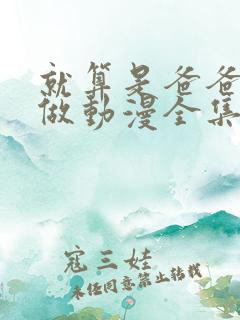 就算是爸爸
做動漫全集
寇三娃
未经同意禁止转载